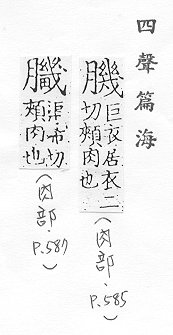 四聲篇海
臘
巨衣居衣二
切頰肉也
(肉部.P.585)
渠希切
頰肉也
(肉部.P.587)